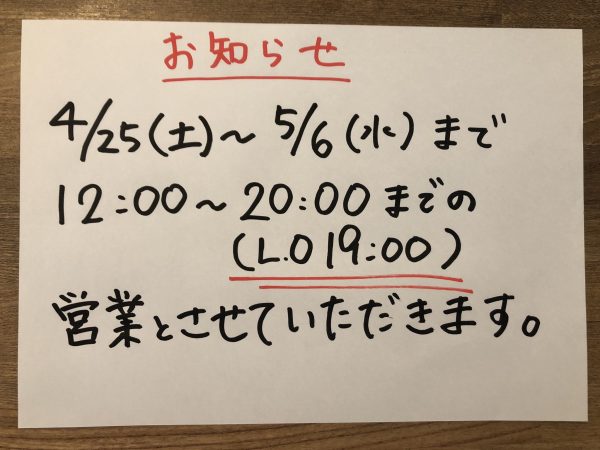 お知らせ
4/25(土)～5/6(水)まで
12:00～20:00までの
(L.O 19:00)
営業とさせていただきます。